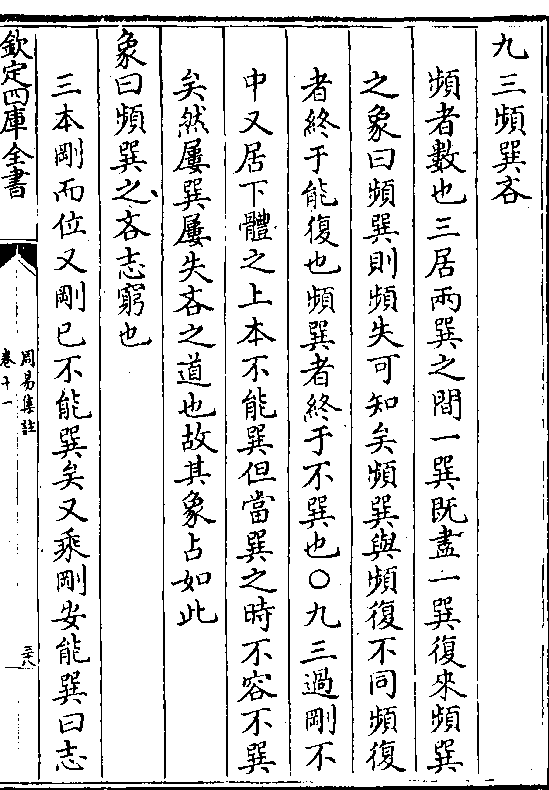 九三頻巽吝
頻者數也三居兩巽之間一巽既盡一巽復來頻巽
之象曰頻巽則頻失可知矣頻巽與頻復不同頻復
者終于能復也頻巽者終于不巽也○九三過剛不
中又居下體之上本不能巽但當巽之時不容不巽
矣然屢巽屢失吝之道也故其象占如此
象曰頻巽之吝志窮也
三本剛而位又剛已不能巽矣又乘剛安能巽曰志
欽定四庫全書
周易集註
卷十一